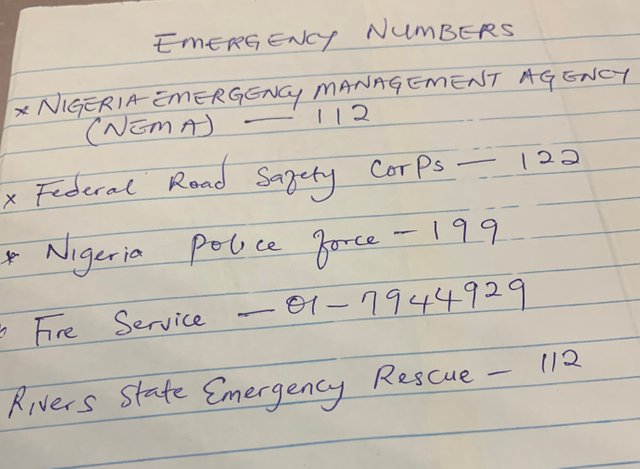 EMERGENCY NUMBERS
* NIGERIA EMERGENCY MANAGEMENT AGENCY
(NEMA) — 112
x Federal Road Safety Corps — 122
* Nigeria Police force — 199
Fire Service — 01-7944929
Rivers State Emergency Rescue — 112